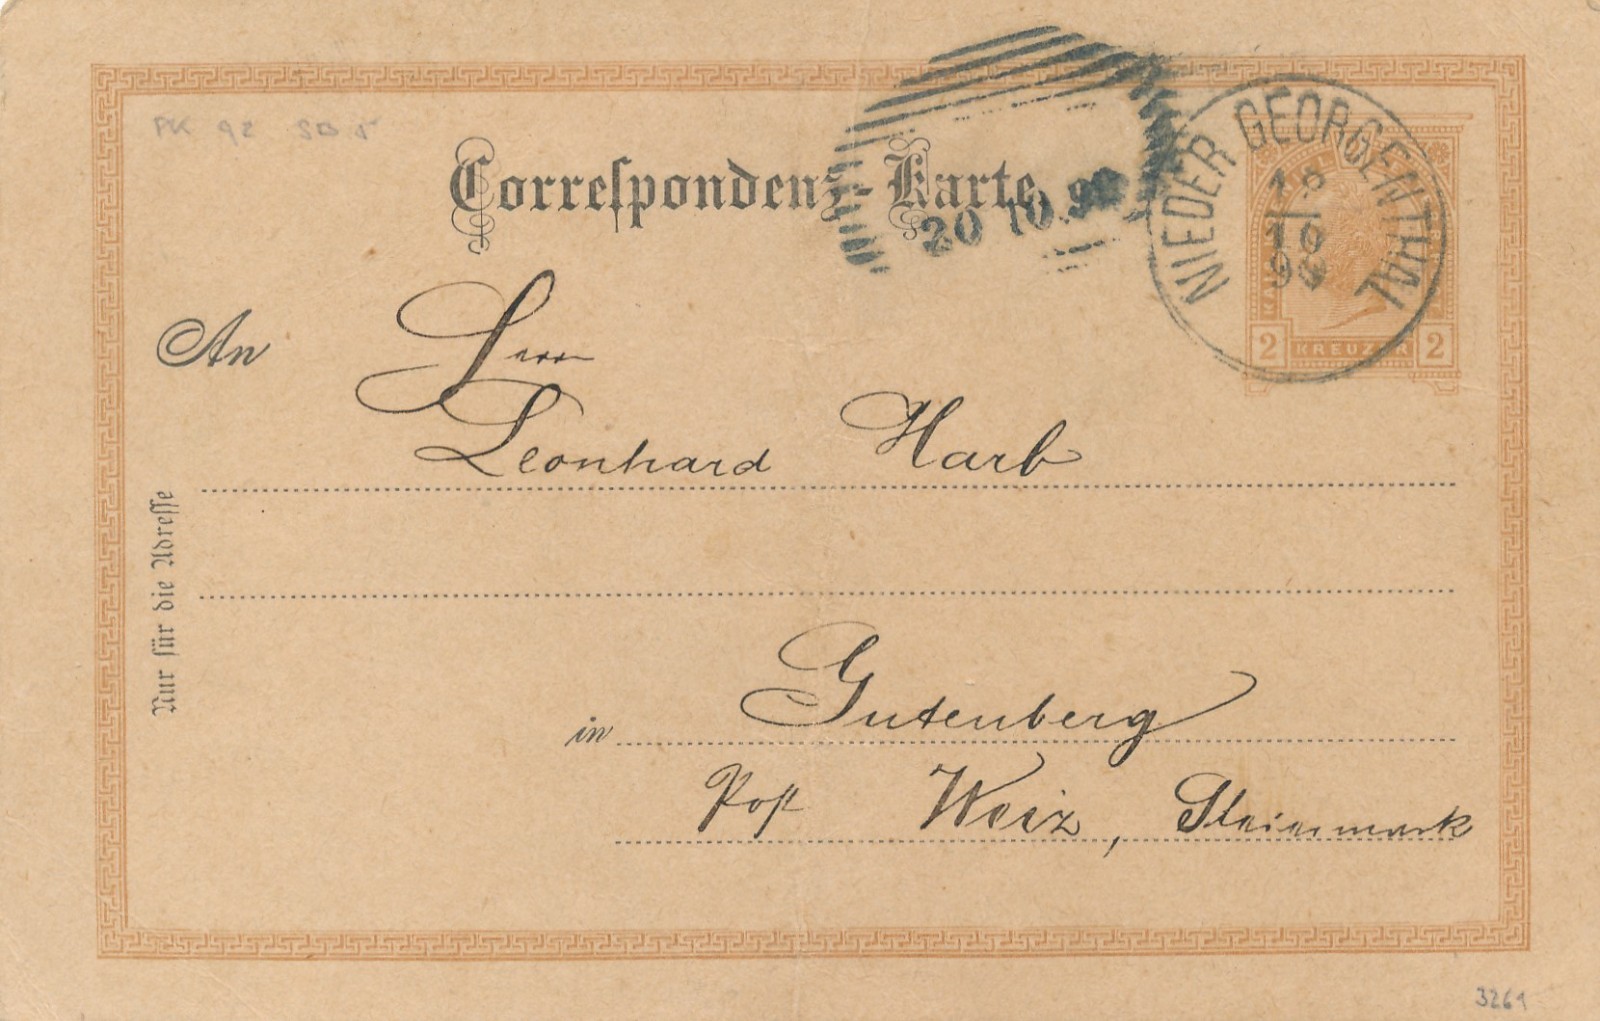 PK 92 SB 5
Correspondenz-Karte
20 10
NIEDER GEORGENTHAL
18
10
2 KREUZER 2
An
Herrn
Leonhard Harb
Nur für die Adresse
in Gutenberg
Post Weiz, Steiermark
3261